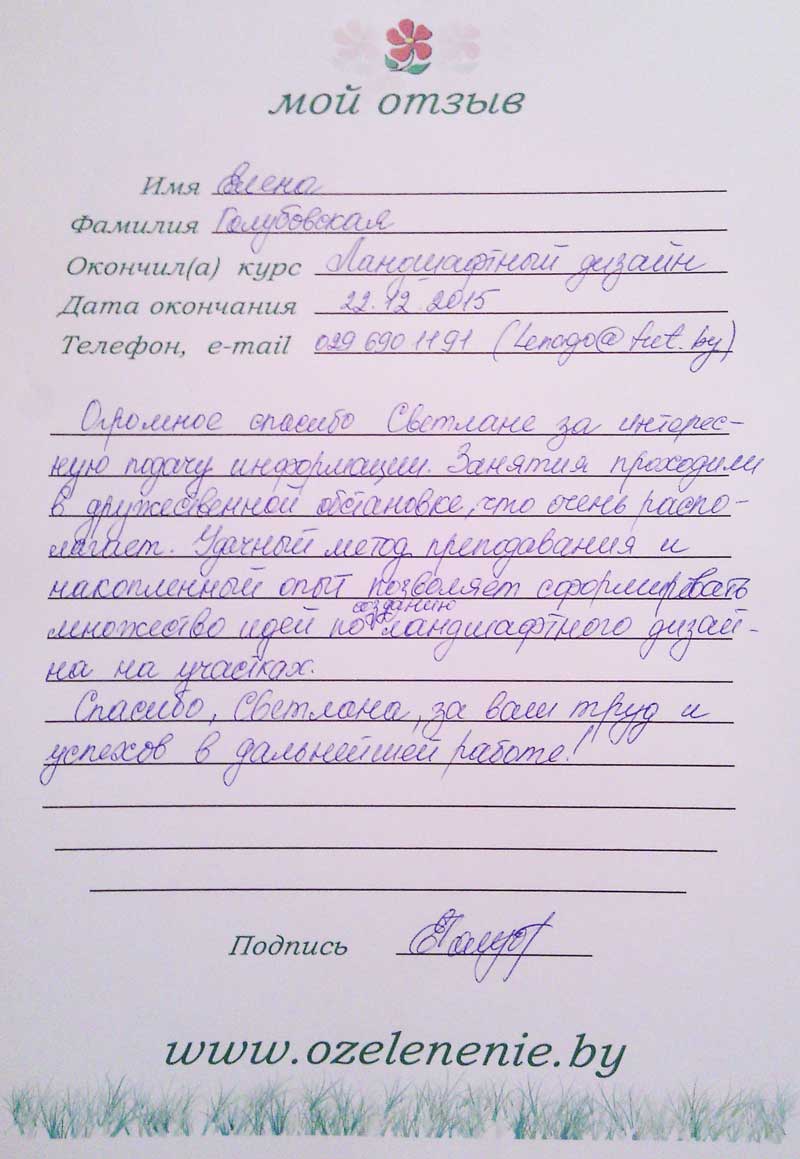 мой отзыв
Имя Елена
Фамилия Голубовская
Окончил(а) курс Ландшафтный дизайн
Дата окончания 22.12.2015
Телефон, e-mail 029 690 11 91 (Lenago@tut.by)
Огромное спасибо Светлане за интерес-
ную подачу информации. Занятия проходили
в дружественной обстановке, что очень распо-
лагает. Удачный метод преподавания и
накопленный опыт позволяет сформировать
созданию
множество идей по ландшафтного дизай-
на на участках.
Спасибо, Светлана, за ваш труд и
успехов в дальнейшей работе!
Подпись
www.ozelenenie.by